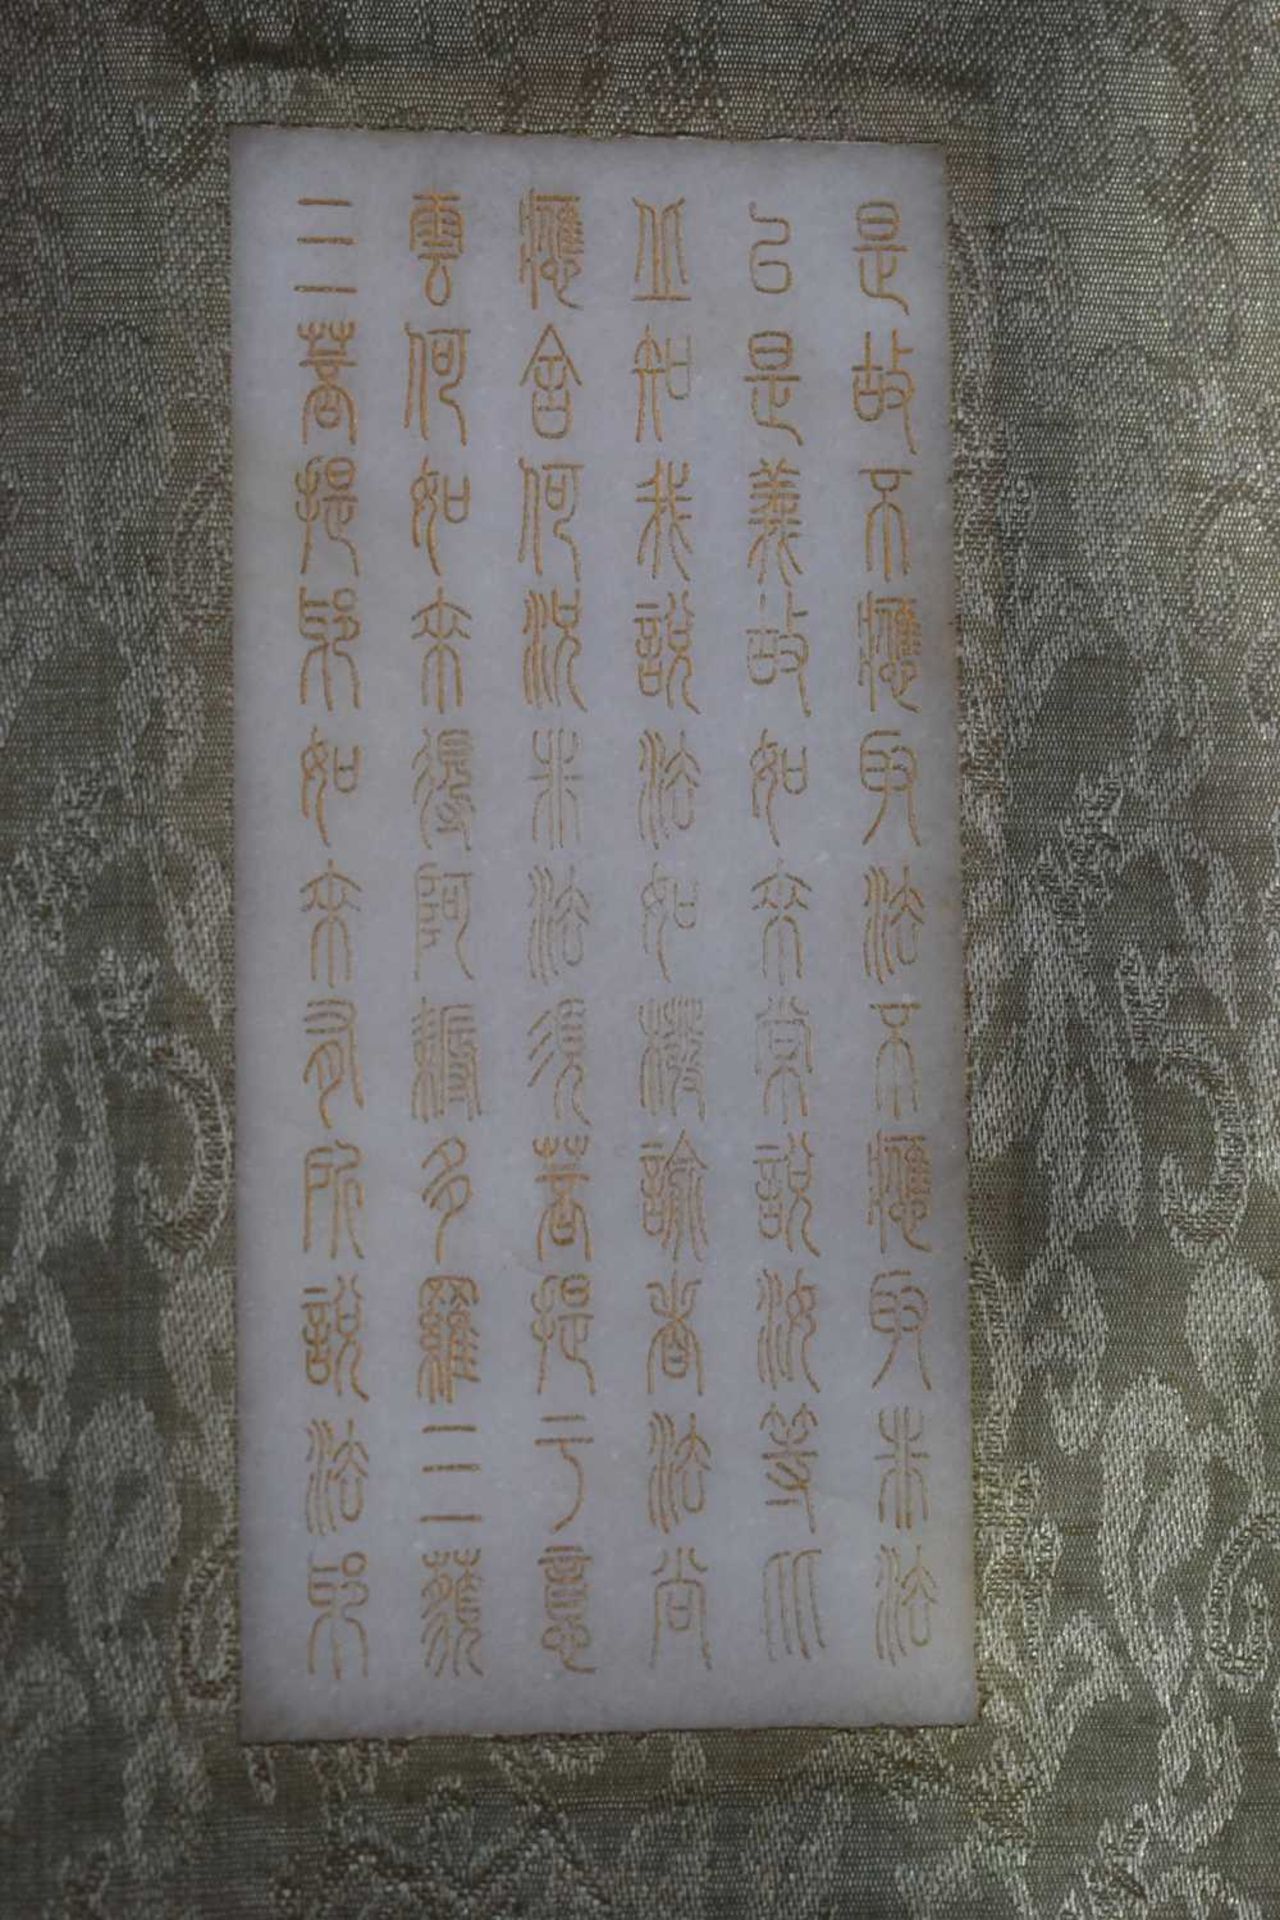 是故不應取法不應取非法
以是義故如來常說汝等比
丘知我說法如筏喻者法尚
應舍何況非法須菩提于意
雲何如來得阿耨多羅三藐
三菩提耶如來有所說法耶